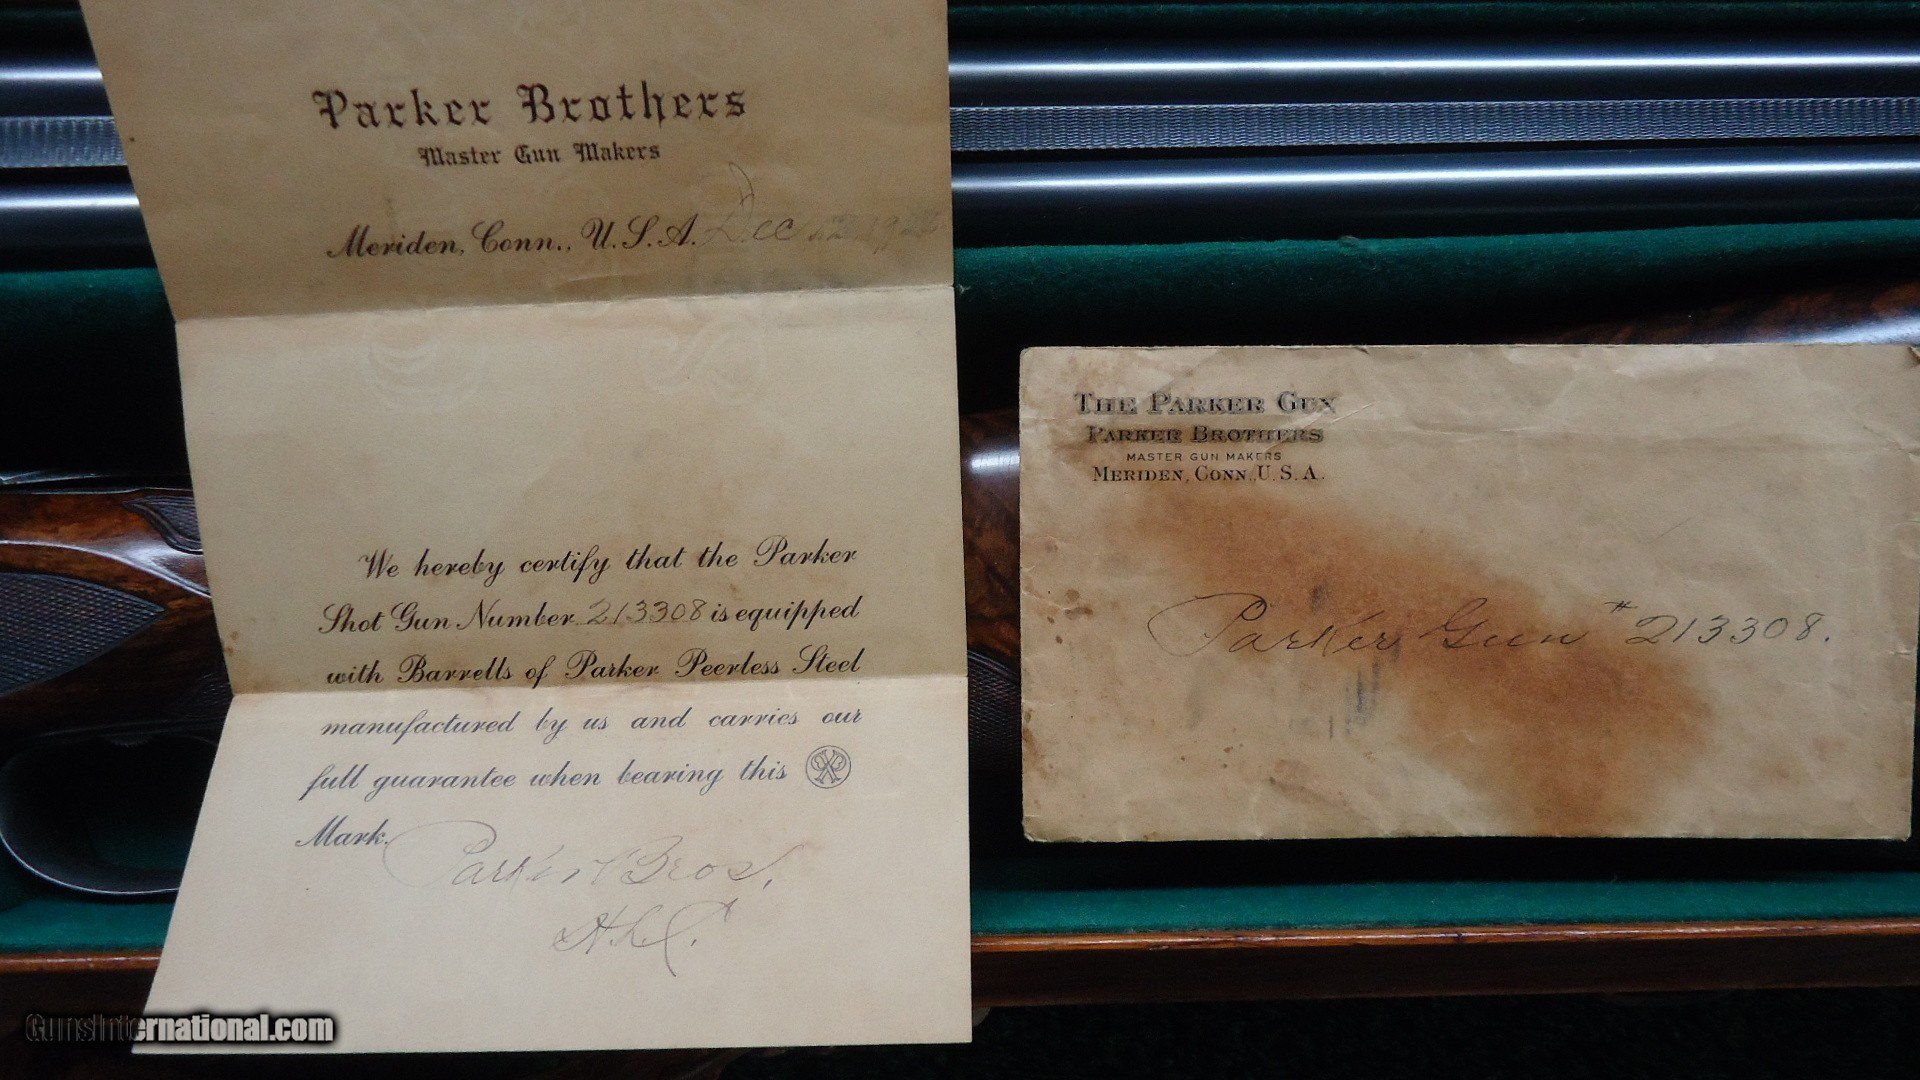 Parker Brothers
Master Gun Makers
Meriden, Conn., U.S.A. Dec
We hereby certify that the Parker
Shot Gun Number 213308 is equipped
with Barrells of Parker Peerless Steel
manufactured by us and carries our
full guarantee when bearing this
Mark.
Parker Bros.
THE PARKER GUN
PARKER BROTHERS
MASTER GUN MAKERS
MERIDEN, CONN., U.S.A.
Parker Gun # 213308.
GunsInternational.com